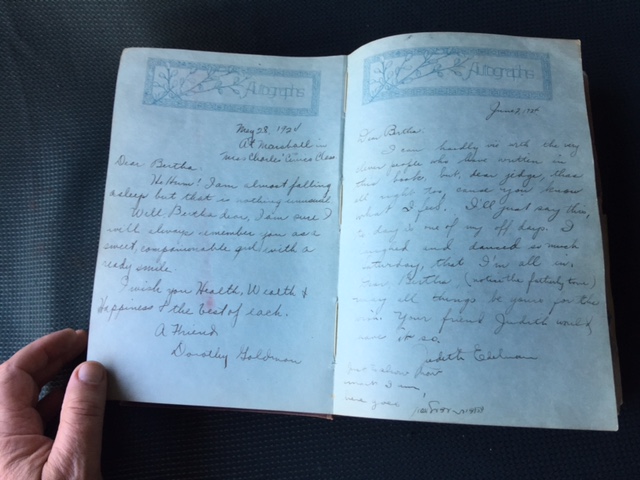 Autographs
May 28, 1924
At Marshall in
Miss Charles' Civics Class
Dear Bertha
Ho Hum! I am almost falling
asleep but that is nothing unusual
Well, Bertha dear, I am sure I
will always remember you as a
sweet, companionable girl with a
ready smile
I wish you Health, Wealth &
Happiness & the best of each.
A Friend
Dorothy Goldman
Autographs
June 2, 1924
Dear Bertha.
I can hardly vie with the very
clever people who have written in
this book, but, dear
all right too, cause you know
what I feel. I'll just say this,
to-day is one of my off days. I
and danced so much
Saturday, that I'm all in.
Bertha, (notice the fatherly tone)
may all things be yours for the
Your friend Judith would
have it so.
Judith Edelman
just below
what I am